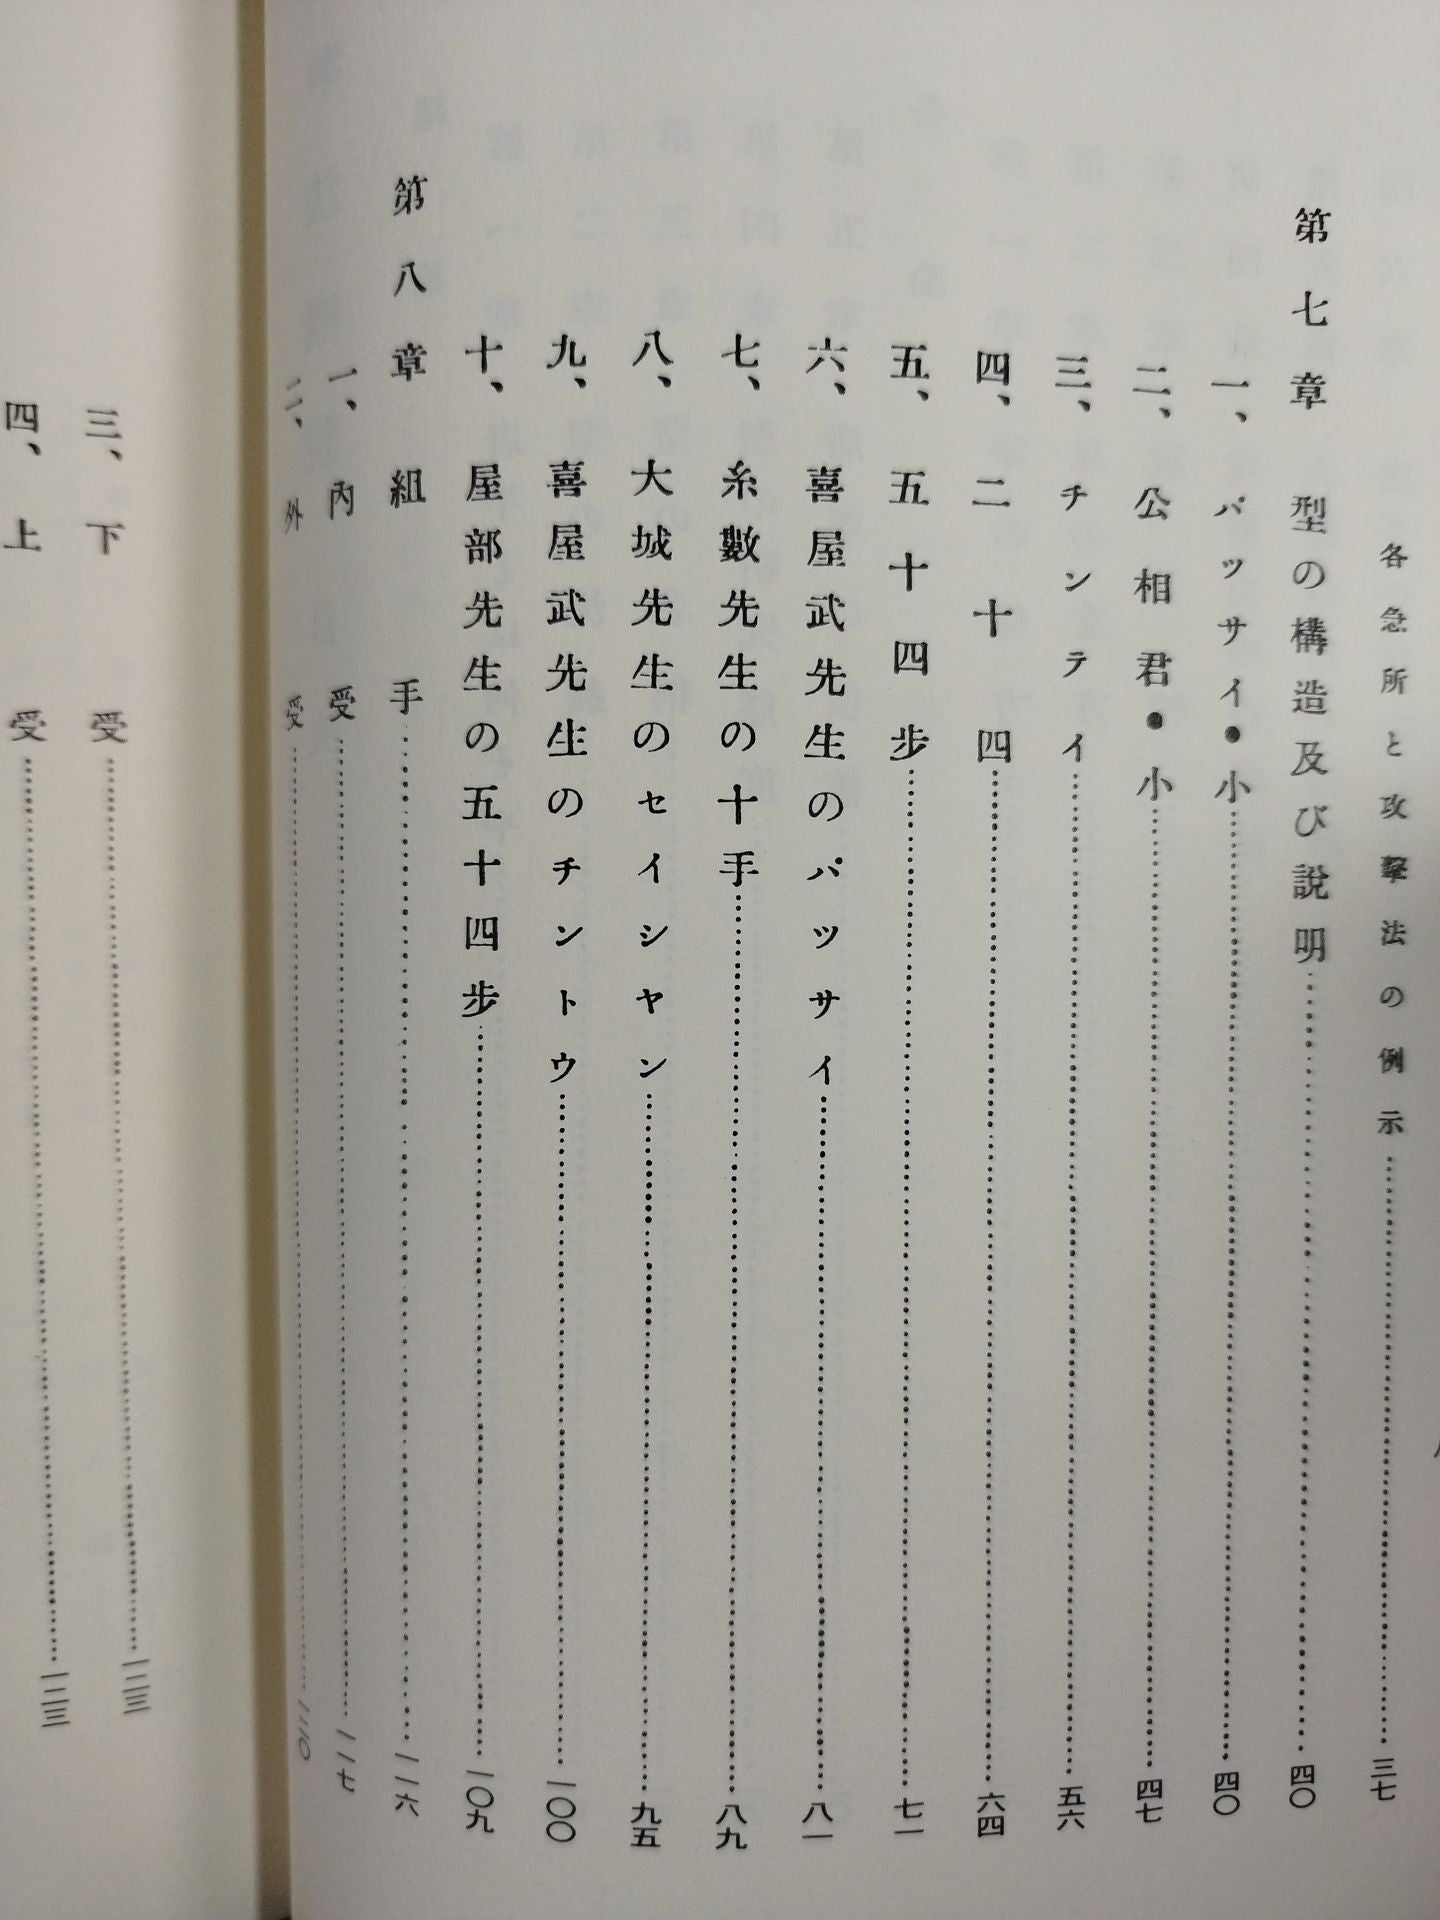 各急所と攻擊法の例示……三七
第七章 型の構造及び說明……四〇
一、パッサイ・小……四〇
二、公相君・小……四七
三、チンテイ……五六
四、二十四……六四
五、五十四步……七一
六、喜屋武先生のパッサイ……八一
七、糸數先生の十手……八九
八、大城先生のセイシヤン……九五
九、喜屋武先生のチントウ……一〇〇
十、屋部先生の五十四步……一〇九
第八章 組手……一一六
一、內受……一一七
二、外受……一二〇
三、下受……一二三
四、上受……一二三